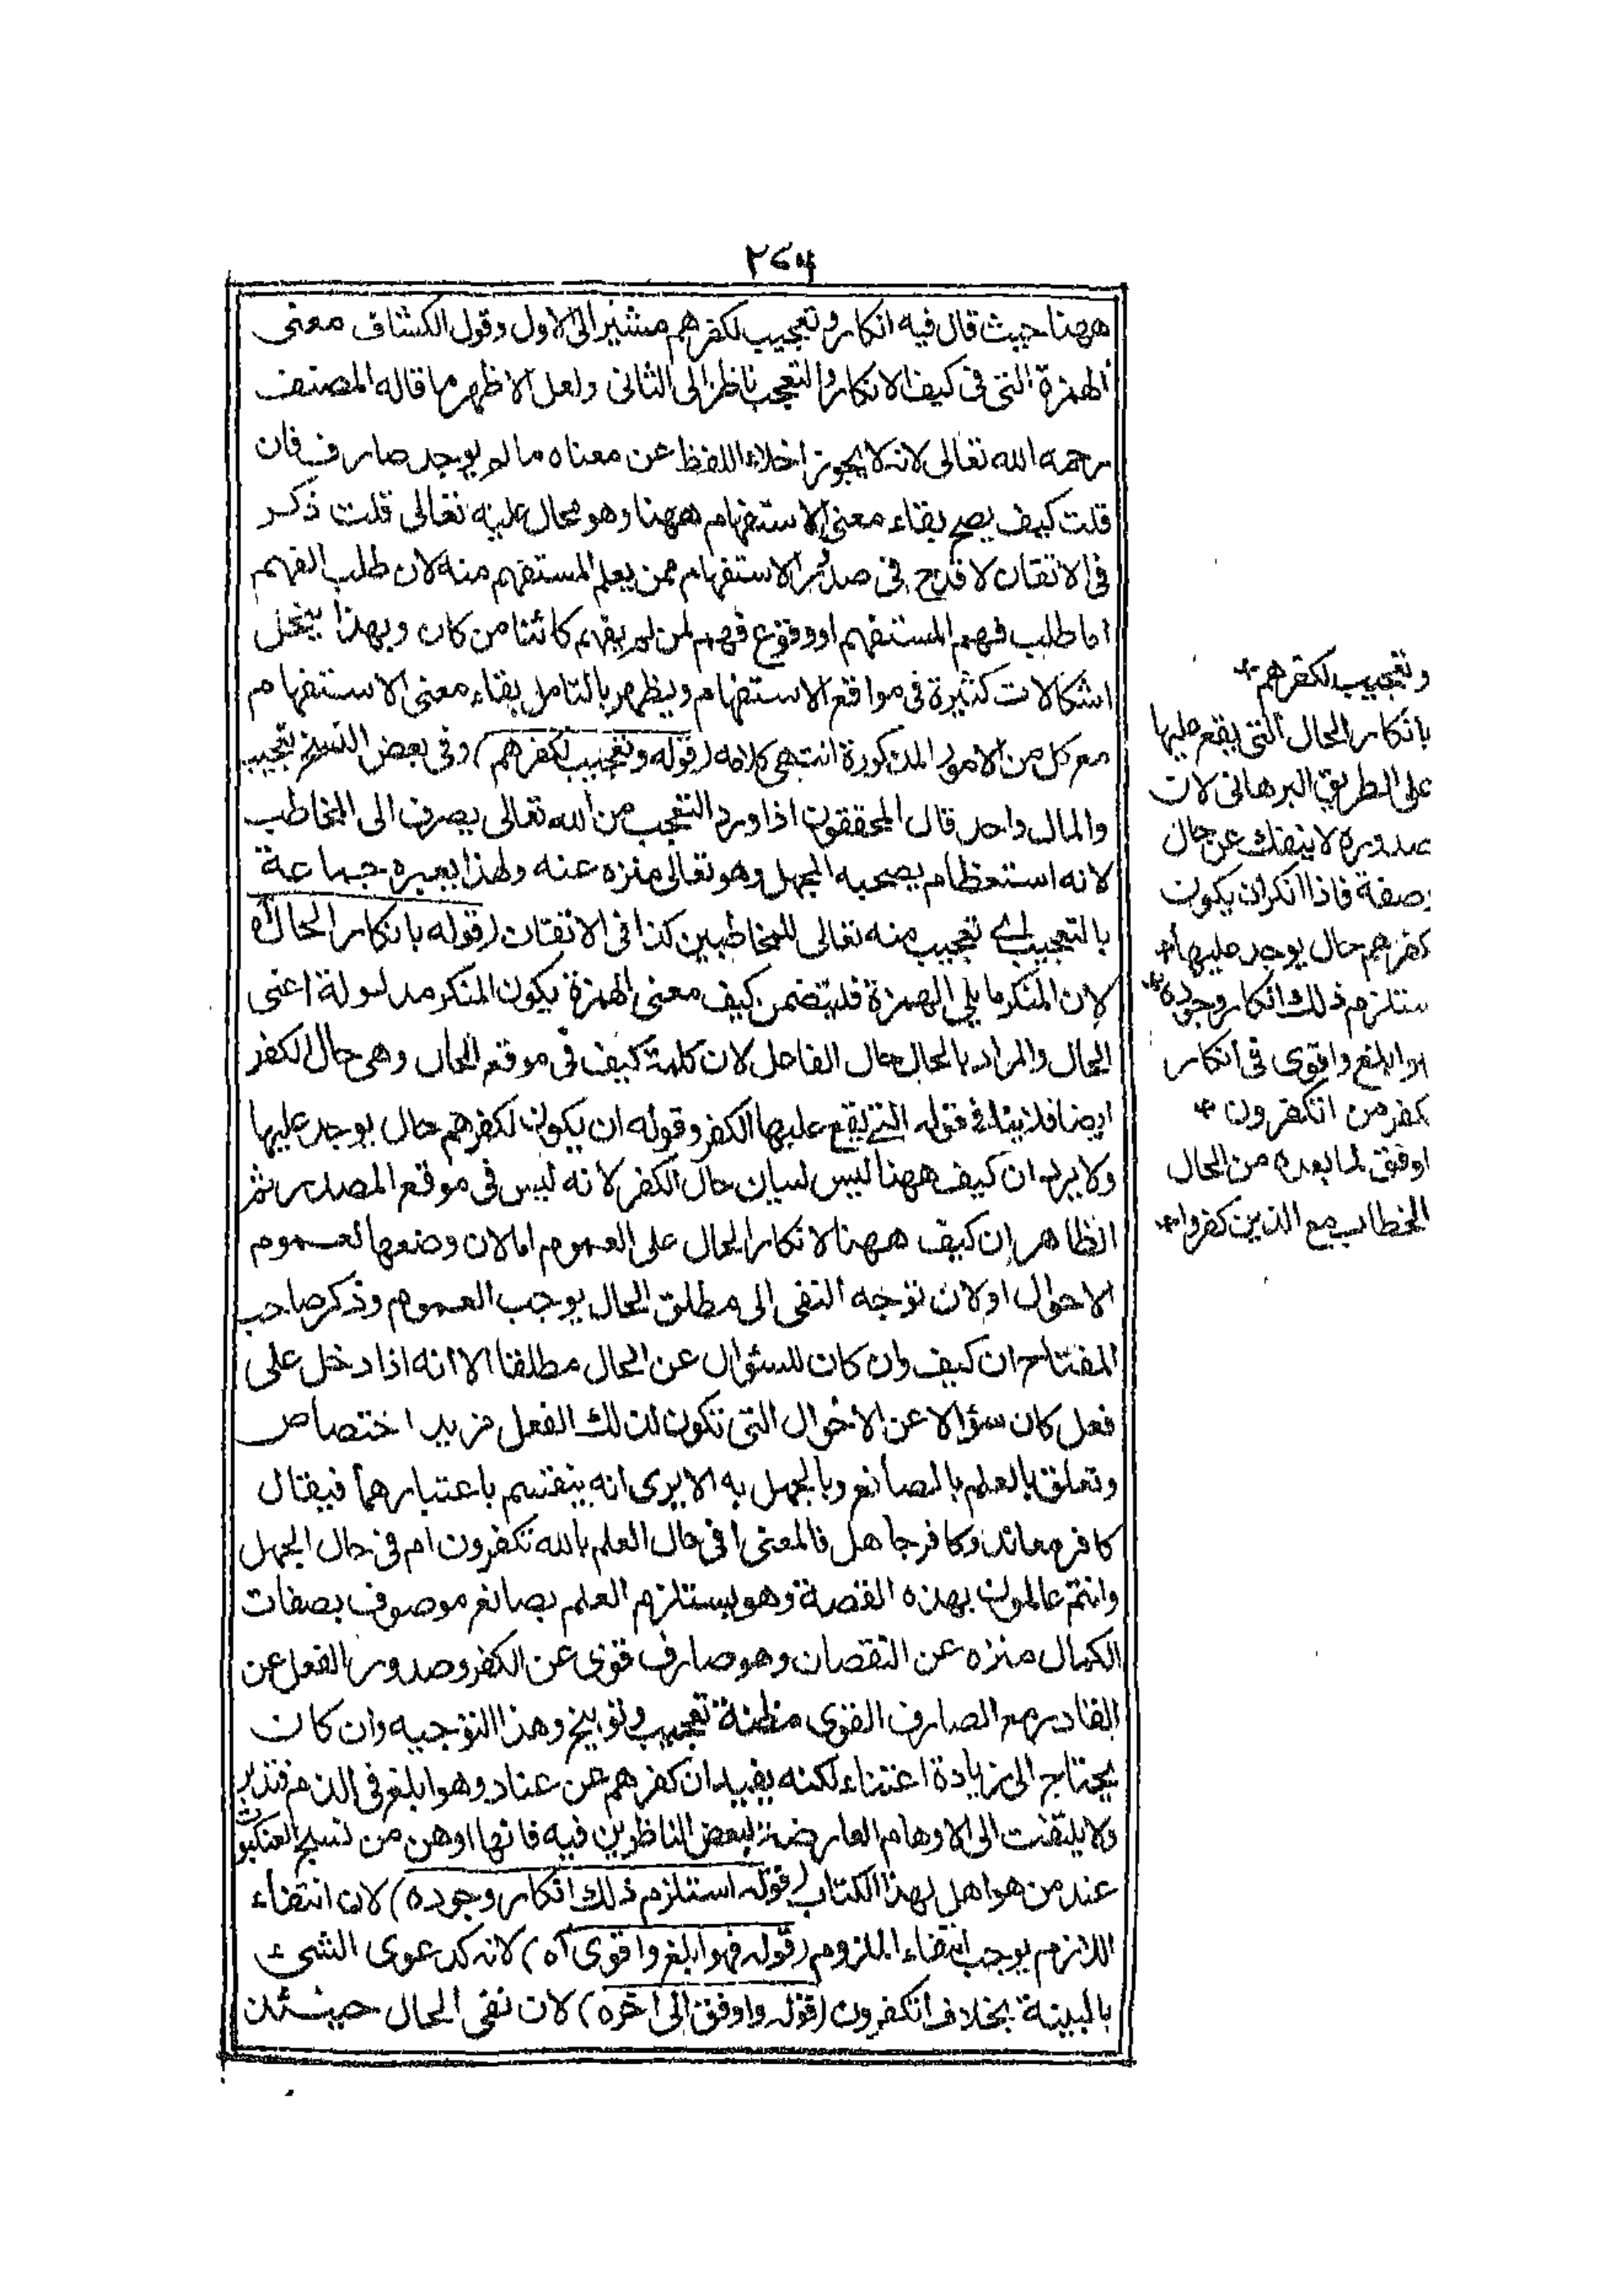 ٢٧٤
ههنا حيث قال فيه انكار وتعجيب لكفرهم مشيرا الى الاول وقول الكشاف معنى
الهمزة التى فى كيف الانكار والتعجب ناظرا الى الثانى ولعل الاظهر ما قاله المصنف
رحمه الله تعالى لانه لا يجوز اخلاء اللفظ عن معناه ما لم يوجد صارف فان
قلت كيف يصح بقاء معنى الاستفهام ههنا وهو محال عليه تعالى قلت ذكر
فى الاتقان لا قدح فى صدور الاستفهام ممن يعلم المستفهم منه لان طلب الفهم
اما طلب فهم المستفهم او وقوع فهم لمن لم يفهم كائنا من كان وبهذا ينحل
اشكالات كثيرة فى مواقع الاستفهام ويظهر بالتامل بقاء معنى الاستفهام
مع كل من الامور المذكورة انتهى كلامه (قوله وتعجيب لكفرهم) وفى بعض النسخ تعجيب
والمال واحد قال المحققون اذا ورد التعجب من الله تعالى يصرف الى المخاطب
لانه استعظام يصحبه الجهل وهو تعالى منزه عنه ولهذا يعبره جماعة
بالتعجيب اى تعجيب منه تعالى للمخاطبين كذا فى الاتقان (قوله بانكار الحال اه
لان المنكر ما يلى الهمزة فلتضمن كيف معنى الهمزة يكون المنكر مدلوله اعنى
الحال والمراد بالحال حال الفاعل لان كلمة كيف فى موقع الحال وهى حال الكفر
ايضا فلا ينافى قوله التى يقع عليها الكفر وقوله ان يكون لكفرهم حال يوجد عليها
ولا يرد ان كيف ههنا ليس لبيان حال الكفر لانه ليس فى موقع المصدر ثم
الظاهر ان كيف ههنا لانكار الحال على العموم اما لان وضعها لعموم
الاحوال او لان توجه النفى الى مطلق الحال يوجب العموم وذكر صاحب
المفتاح ان كيف وان كان للسئوال عن الحال مطلقا الا انه اذا دخل على
فعل كان سؤالا عن الاحوال التى تكون لذلك الفعل مزيد اختصاص
وتعلق بالعلم بالصانع وبالجهل به الا يرى انه ينقسم باعتبارهما فيقال
كافر معاند وكافر جاهل فالمعنى افى حال العلم بالله تكفرون ام فى حال الجهل
وانتم عالمون بهذه القصة وهو يستلزم العلم بصانع موصوف بصفات
الكمال منزه عن النقصان وهو صارف قوى عن الكفر وصدور الفعل عن
القادر مع الصارف القوى مظنة تعجيب وتوبيخ وهذا التوجيه وان كان
يحتاج الى زيادة اعتناء لكنه يفيد ان كفرهم عن عناد وهو ابلغ فى الذم فتدبر
ولا يلتفت الى الاوهام العارضة لبعض الناظرين فيه فانها اوهن من نسج العنكبوت
عند من هو اهل لهذا الكتاب (قوله استلزم ذلك انكار وجوده) لان انتفاء
اللازم يوجب انتفاء الملزوم (قوله فهو ابلغ واقوى اه) لانه كدعوى الشىء
بالبينة بخلاف اتكفرون (قوله واوفق الى اخره) لان نفى الحال حينئذ
وتعجيب لكفرهم
بانكار الحال التى يقع عليها
على الطريق البرهانى لان
صدوره لا ينفك عن حال
وصفة فاذا انكر ان يكون
كفرهم حال يوجد عليها
ستلزم ذلك انكار وجوده
ابلغ واقوى فى انكار
كفر من اتكفرون
اوفق لما بعده من الحال
الخطاب مع الذين كفروا